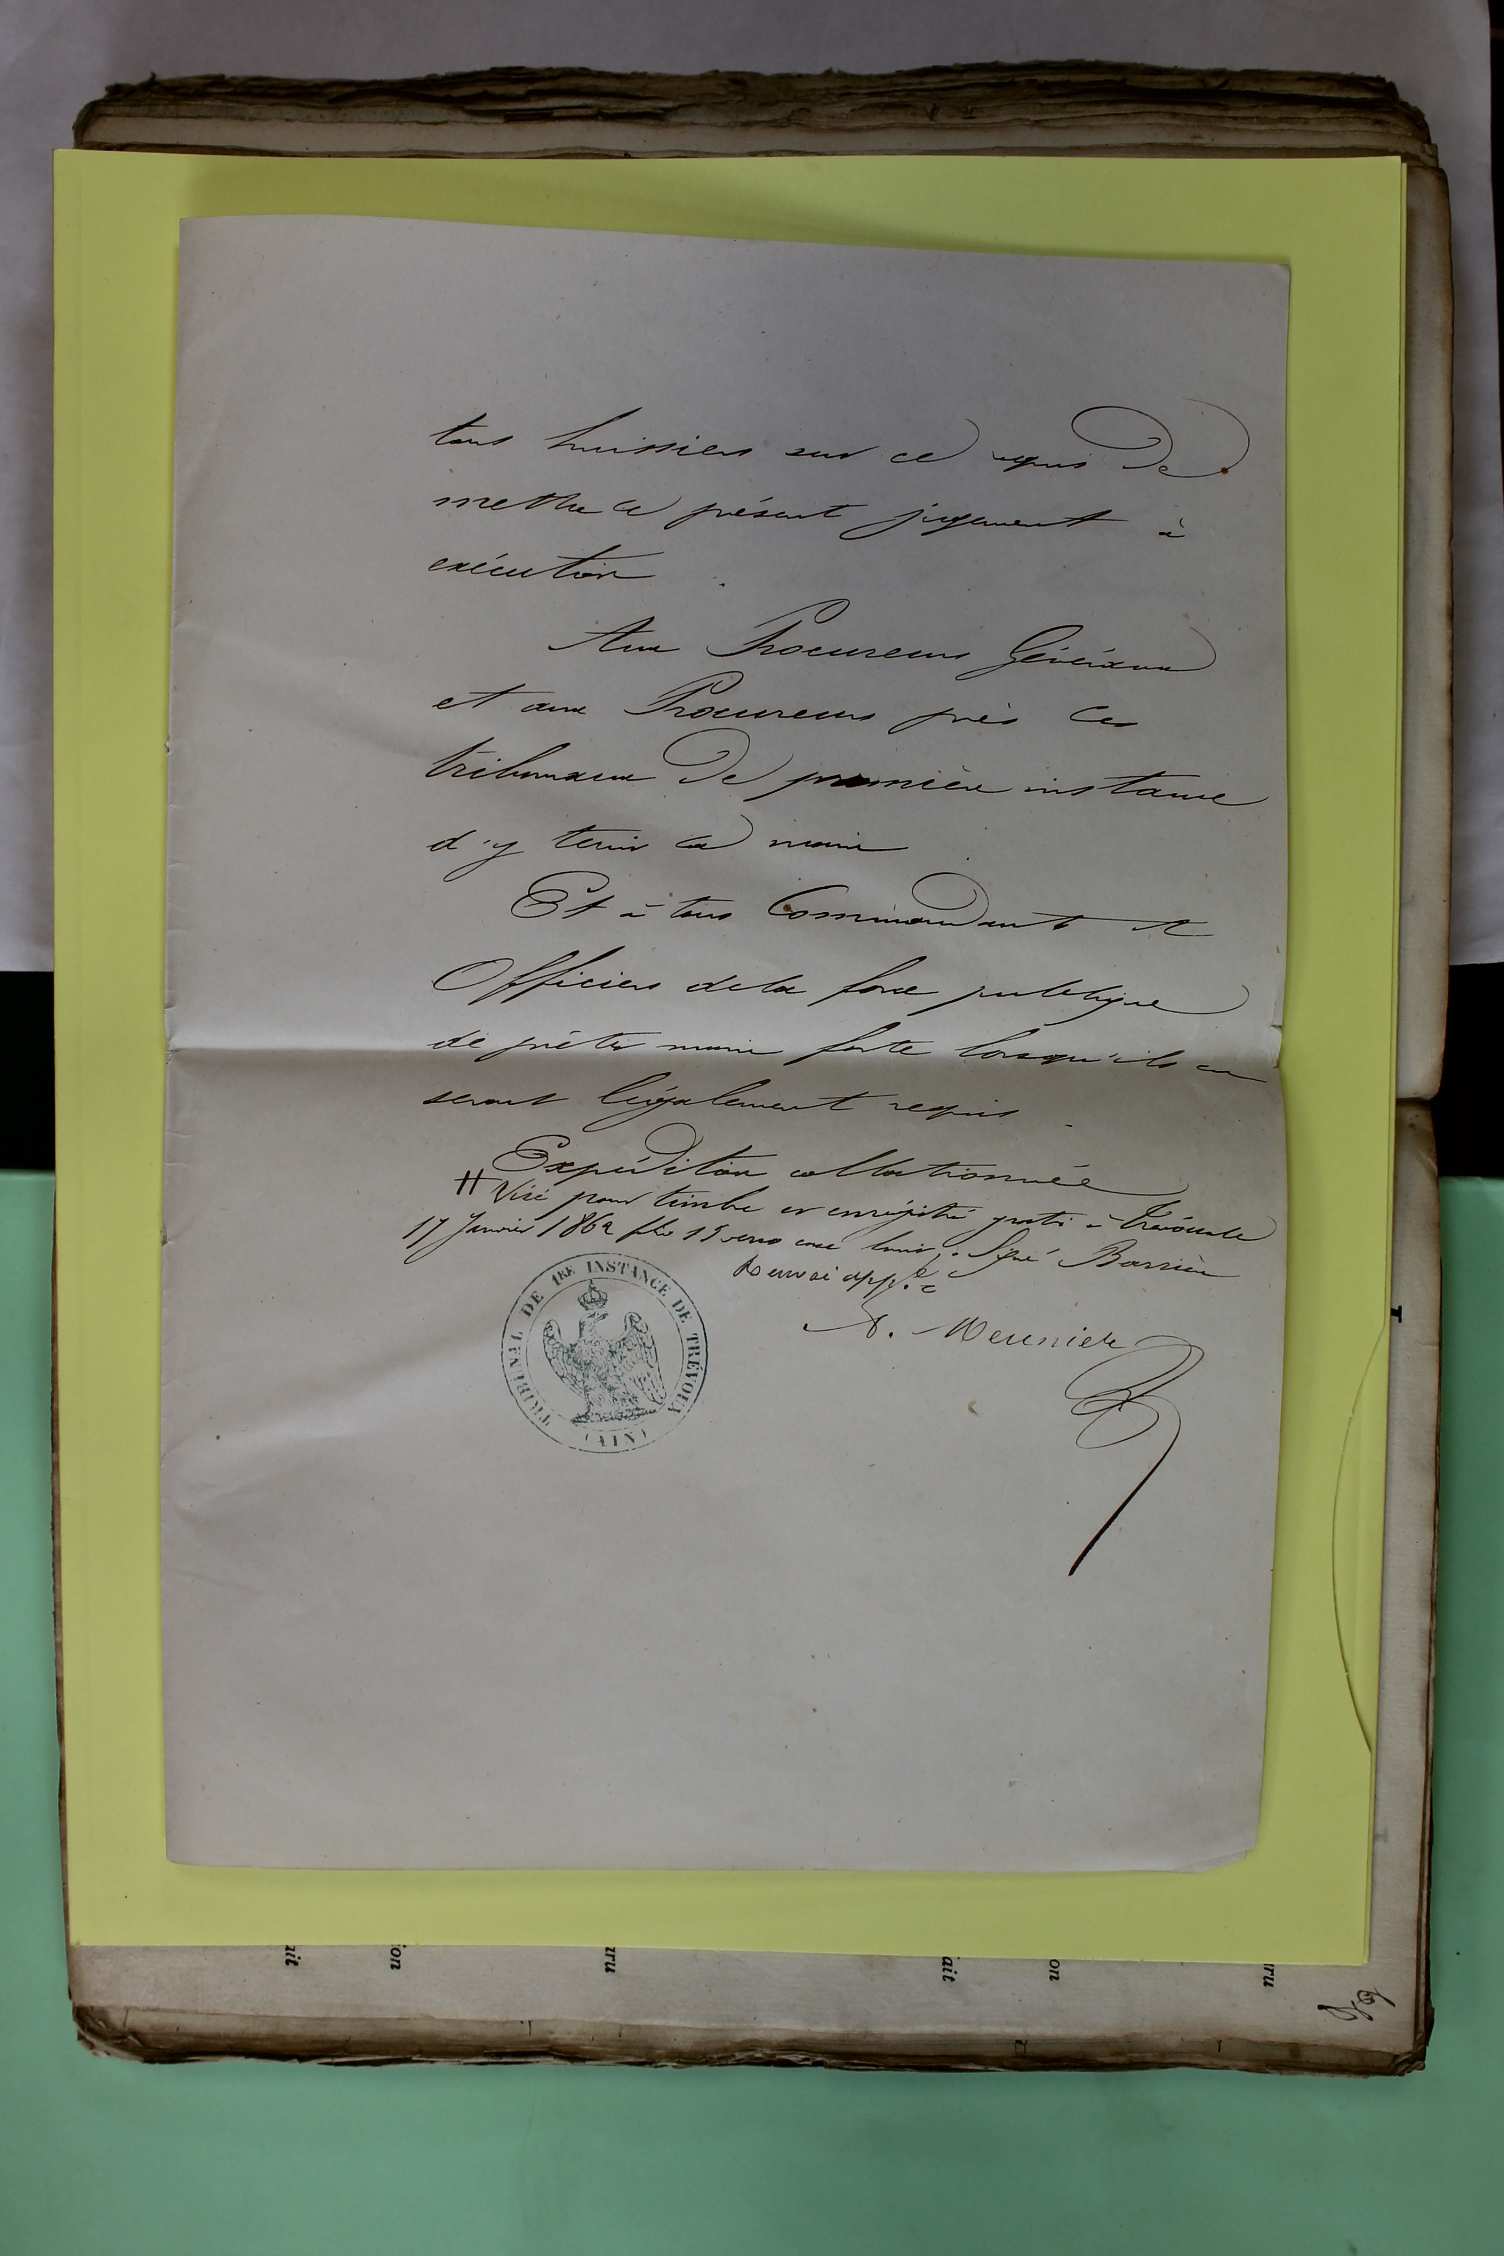 tous huissiers sur ce requis de
mettre le présent jugement à
exécution.
Aux Procureurs Généraux
et aux Procureurs près les
tribunaux de première instance
d'y tenir la main
Et à tous Commandants et
Officiers de la force publique
de prêter main forte lorsqu'ils en
seront légalement requis.
Expédition collationnée
# Visé pour timbre et enregistré gratis à Trévoux le
17 Janvier 1862 fo 15 verso case . Signé Barrière
Renvoi app.é
A. Meunier
TRIBUNAL DE 1RE INSTANCE DE TRÉVOUX
(AIN)
ait
ion
uru
ait
on
uru